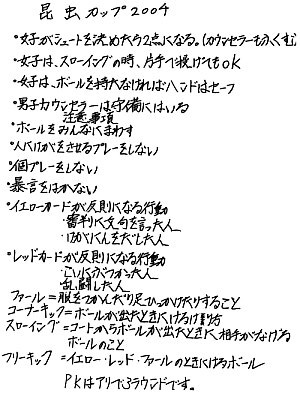 昆虫カップ2004
・女子がシュートを決めたら2点になる。(カウンセラーもふくむ)
・女子は、スローイングの時、片手で投げてもOK
・女子は、ボールを持たなければハンドはセーフ
・男子カウンセラーは守備にはいる
注意事項
・ボールをみんなにまわす
・人にけがをさせるプレーをしない
・個プレーをしない
・暴言をはかない
・イエローカードが反則になる行動
・審判に文句を言った人
・けがにんをだした人
・レッドカードが反則になる行動
・こいにぶつかった人
・乱闘した人
ファール=服をつかんだり足ひっかけたりすること
コーナーキック=ボールが出たときにける
スローイング=コートからボールが出たときに、相手がなげる
ボールのこと
フリーキック=イエロー・レッド・ファールのときにけるボール
PKはアリで3ラウンドです。